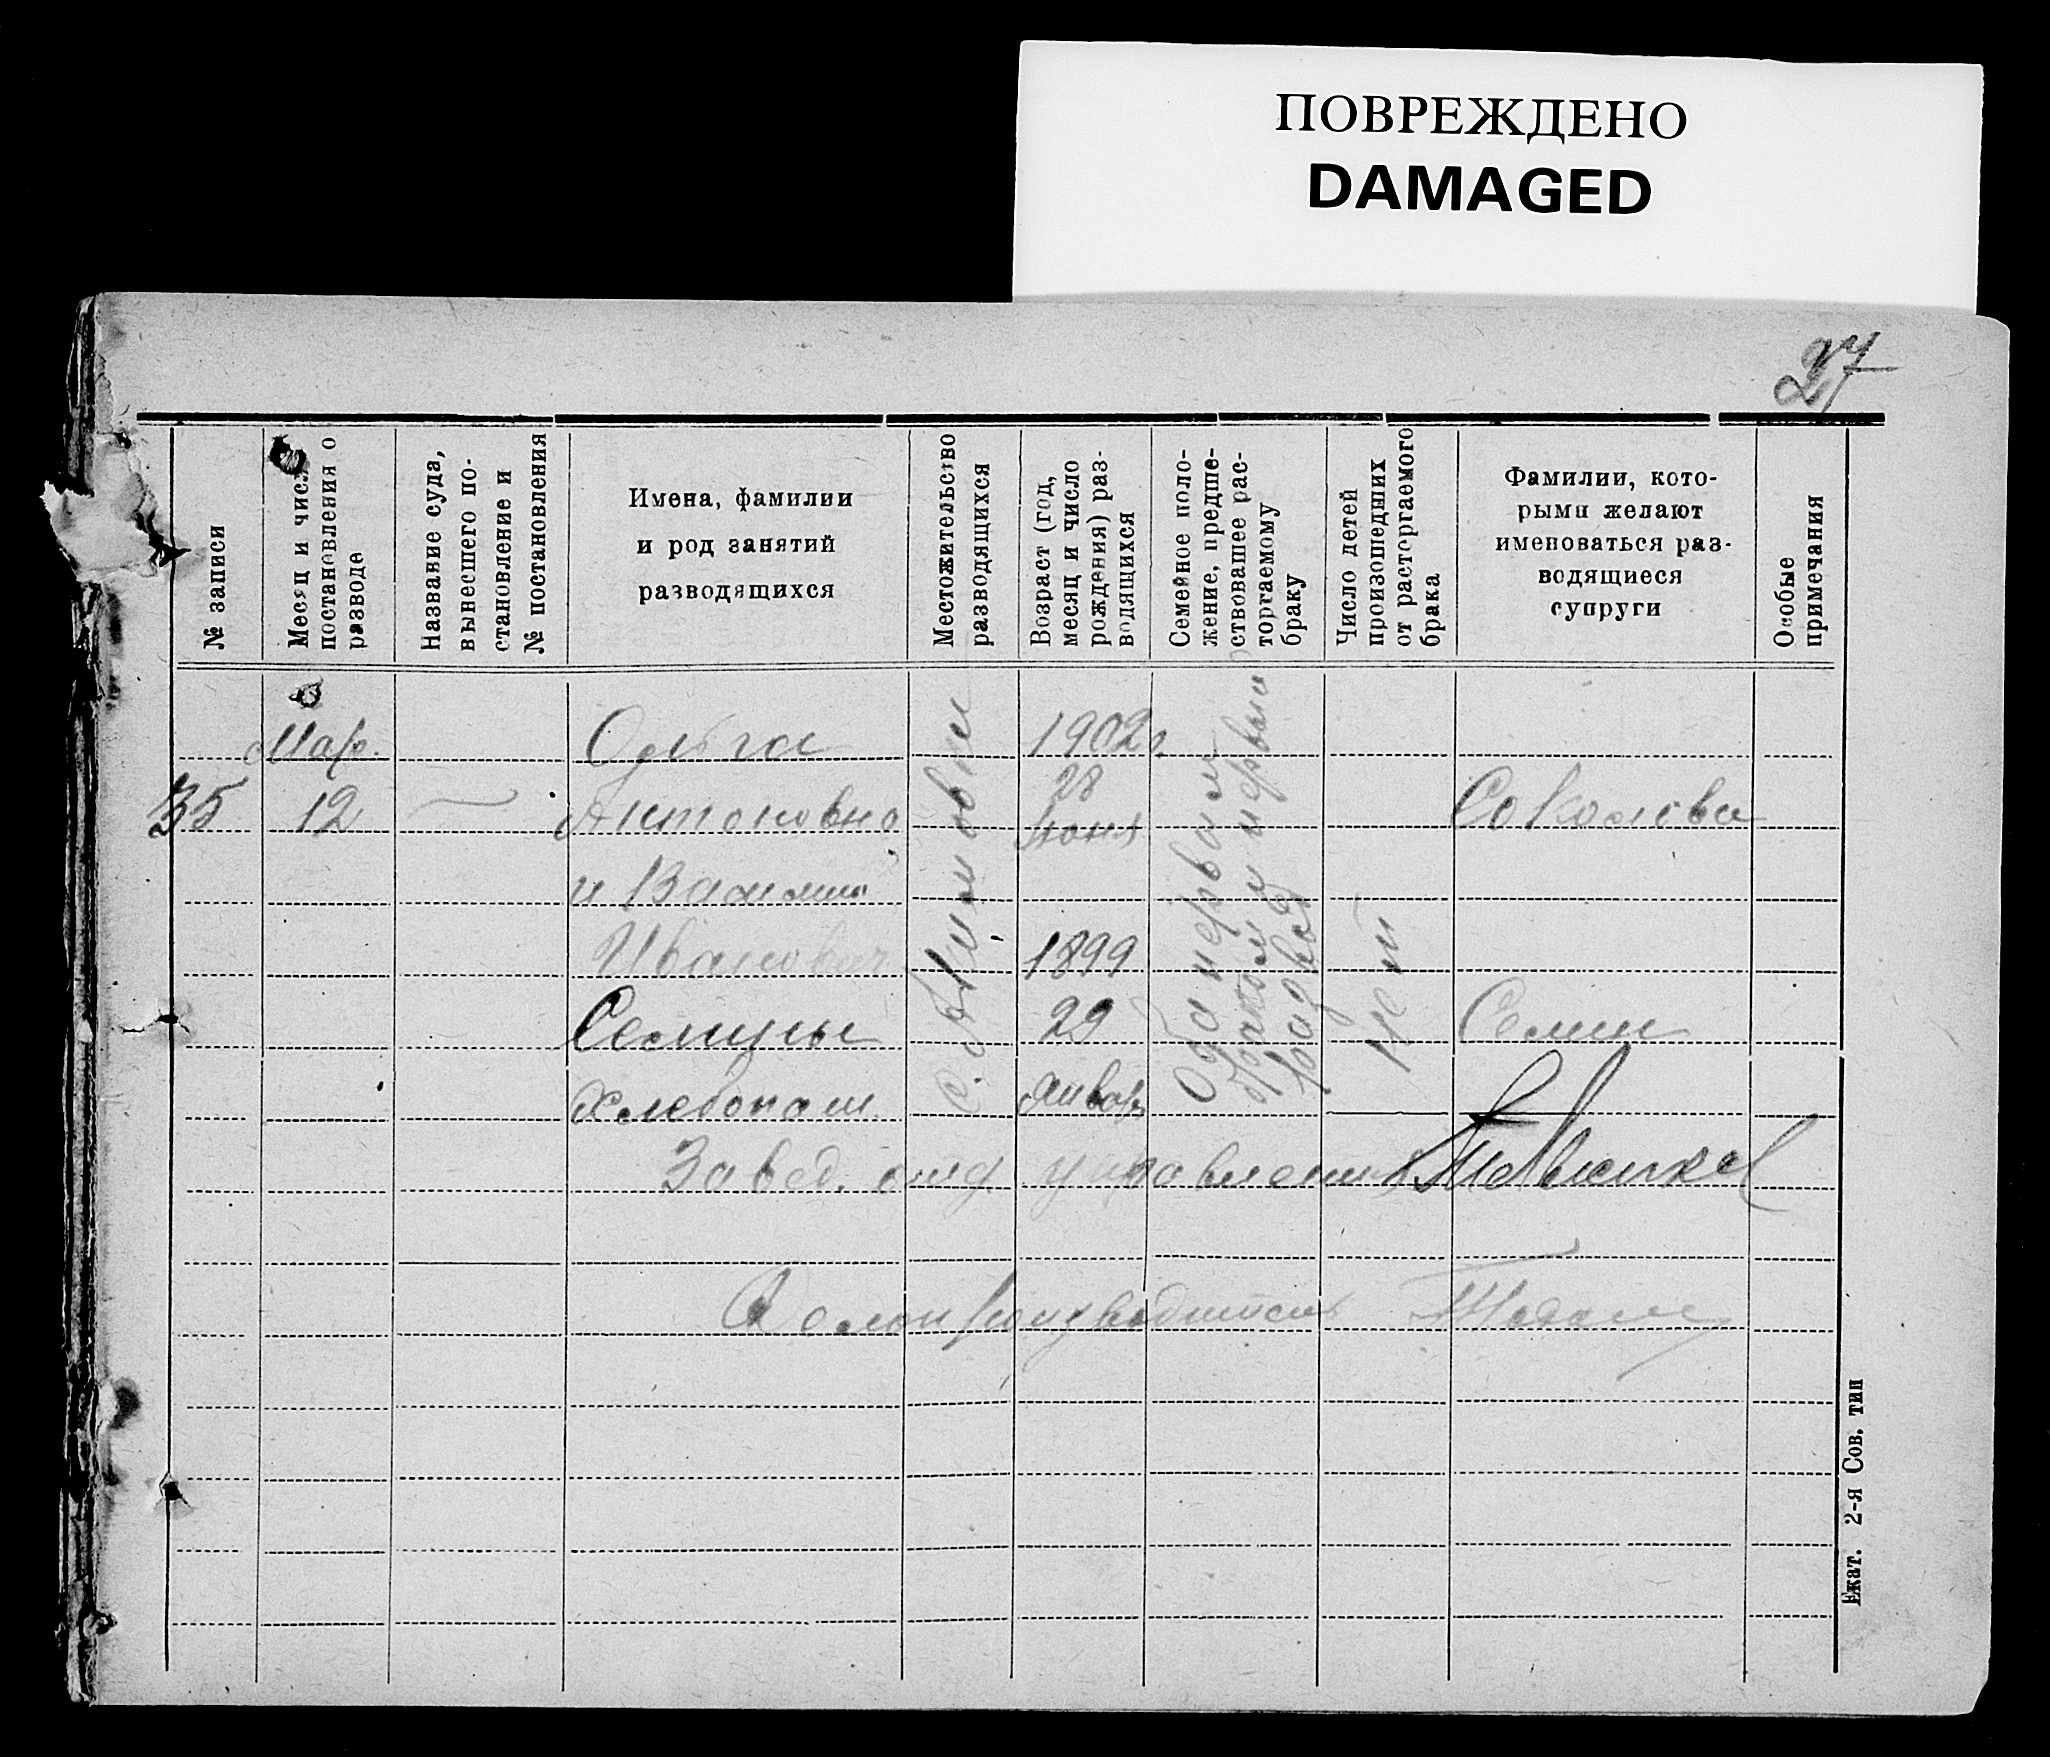 ПОВРЕЖДЕНО
DAMAGED
27
№ записи
Месяц и число
постановления о
разводе
Название суда,
вынесшего по-
становление и
№ постановления
Имена, фамилии
и род занятий
разводящихся
Местожительство
разводящихся
Возраст (год,
месяц и число
рождения) раз-
водящихся
Семейное поло-
жение, предше-
ствовавшее рас-
торгаемому
браку
Число детей
произошедших
от расторгаемого
брака
Фамилии, кото-
рыми желают
именоваться раз-
водящиеся
супруги
Особые
примечания
35
Мар.
12
Ольга
Антоновна
и Василий
Иванович
Семины
хлебопаш
с.
1902 г.
28
Июня
1899
29
Январь
Оба первым
браком и первый
развод
Нет
Соколова
Семин
Завед. отд. управления
Делопроизводитель
Екат. 2-я Сов. тип